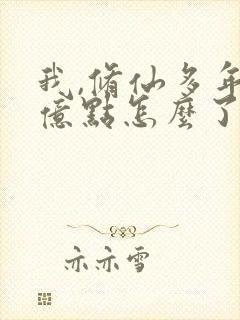 我,脩仙多年
億點怎麼了
亦亦雪